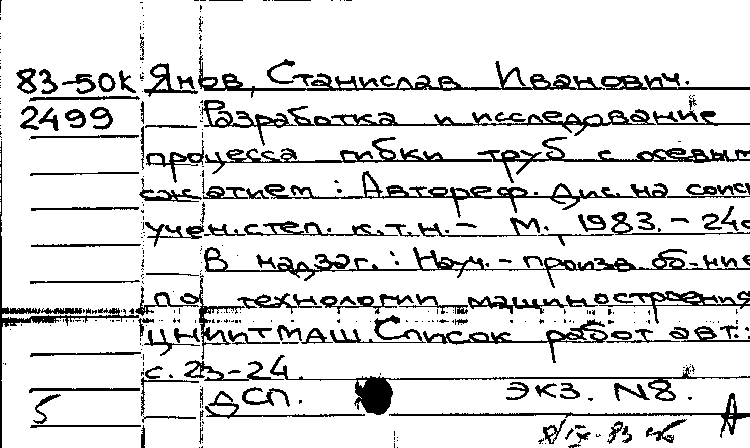 83-50к Янов, Станислав Иванович.
2499 Разработка и исследование
процесса гибки труб с осевым
сжатием : Автореф. дис. на соиск
учен. степ. к.т.н. - М. 1983. - 24с
В надзаг. : Науч. - произв. об-ние
по технологии машиностроения
ЦНИИТМАШ. Список работ авт.:
с. 23-24.
ДСП. экз. N8.
5